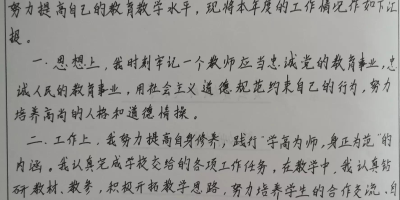 努力提高自己的教育教学水平，现将本年度的工作情况作如下汇
报。
一．思想上，我时刻牢记一个教师应当忠诚党的教育事业，忠
诚人民的教育事业，用社会主义道德规范约束自己的行为，努力
培养高尚的人格和道德情操。
二．工作上，我努力提高自身修养，践行“学高为师，身正为范”的
内涵。我认真完成学校交给的各项工作任务，在教学中，我认真钻
研教材、教参，积极开拓教学思路，努力培养学生的合作交流、自